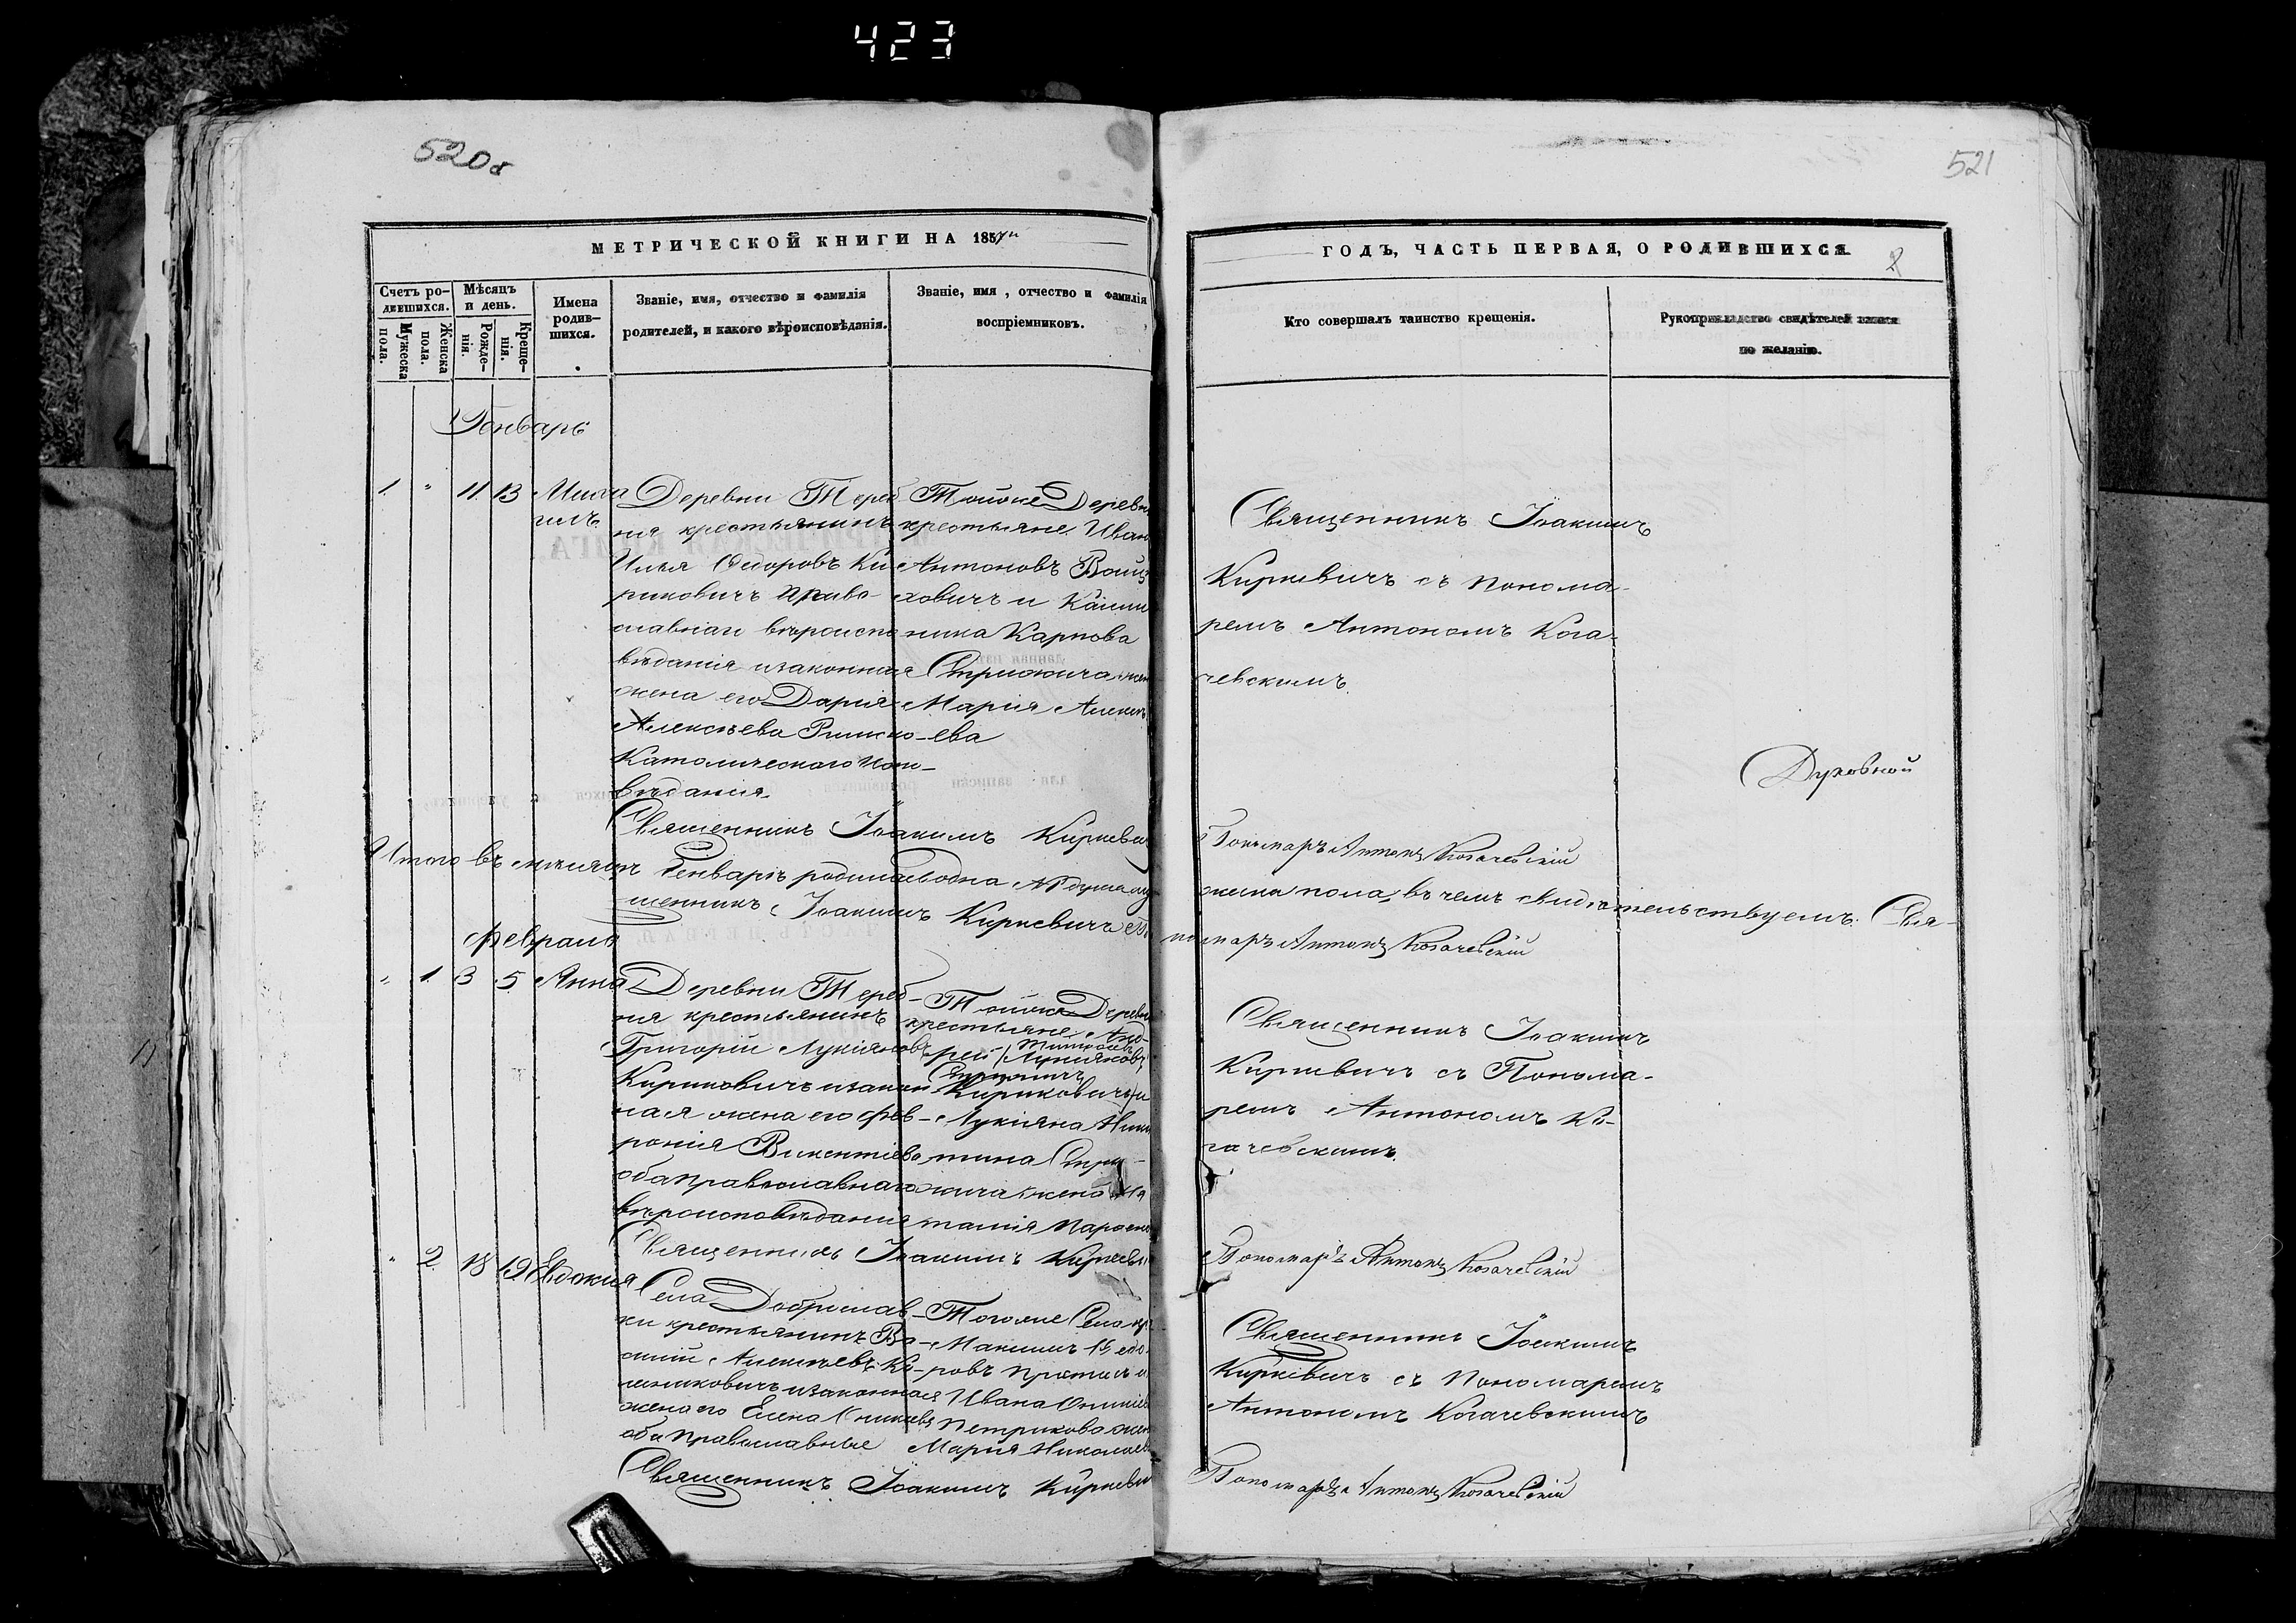 423
520
521
МЕТРИЧЕСКОЙ КНИГИ НА 185
ГОДЪ, ЧАСТЬ ПЕРВАЯ, О РОДИВШИХСЯ
2
Счетъ ро-
дившихся.
Мужеска
пола.
Женска
пола.
Мѣсяцъ
и день.
Рожде-
нія.
Креще-
нія.
Имена
родив-
шихся.
Званіе, имя, отчество и фамилія
родителей, и какого вѣроисповѣданія.
Званіе, имя, отчество и фамилія
воспріемниковъ.
Кто совершалъ таинство крещенія.
Рукоприкладство свидѣтелей записи
по желанію.
Генварь
1. 11. 13
Миха
илъ
Деревни Тереб
ня крестьянинъ
Илья Ѳедоровъ Ки
риковичъ право-
славнаго вѣроиспо
вѣданія изаконная
жена его Дарія
Алексѣева Римско
Католическаго испо-
вѣданія.
Тойже Деревни
крестьяне Иванъ
Антоновъ Войц
ховичъ и
Карпова
жен
Марія Алексѣ
-ева
Священникъ Іоакимъ
Киркевичъ съ понома-
ремъ Антономъ Кога-
чевскимъ.
Духовной
Священникъ Іоакимъ Киркевич
Пономарь Антонъ Когачевскій
Итого въ мѣсяцѣ Генварѣ родилась одна душа
жеска пола, въ чемъ свидѣтельствуемъ. Свя-
щенникъ Іоакимъ Киркевичъ
номарь Антонъ Когачевскій
Февраль
1. 3 5 Анна
Деревни Тереб-
ня крестьянинъ
Григорій Лукіяновъ
Кириковичъ изакон
ная жена его Фев-
ронія Викентіева
оба православнаго
вѣроисповѣданія
Тойже Деревни
крестьяне Анд-
рей Лукіяновъ
Кириковичъ и
Лукіяна Ники
тина Стри-
жича жена На
талія
Священникъ Іоакимъ
Киркевичъ съ Понома-
ремъ Антономъ Ко-
гачевскимъ.
Священникъ Іоакимъ Киркевич
Пономарь Антонъ Когачевскій
2. 18 19 Евдокия
Села Доброслав-
ки крестьянинъ Ва-
силій Алексѣевъ Ко-
изаконная
жена его Елена
оба православные
Тогоже Села кр
Максимъ Ѳедо
ровъ
Ивана
Петрикова жен
Марія Николаев
Священникъ Іоакимъ
Киркевичъ съ пономаремъ
Антономъ Когачевскимъ
Священникъ Іоакимъ Киркевич
Пономарь Антонъ Когачевскій